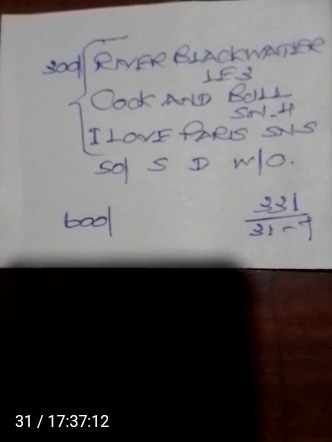 300/ RIVER BLACKWATER
LE3
COCK AND BULL
SN-4
I LOVE PARIS SNS
50/ S D W/O.
600/
331
31-7
31 / 17:37:12